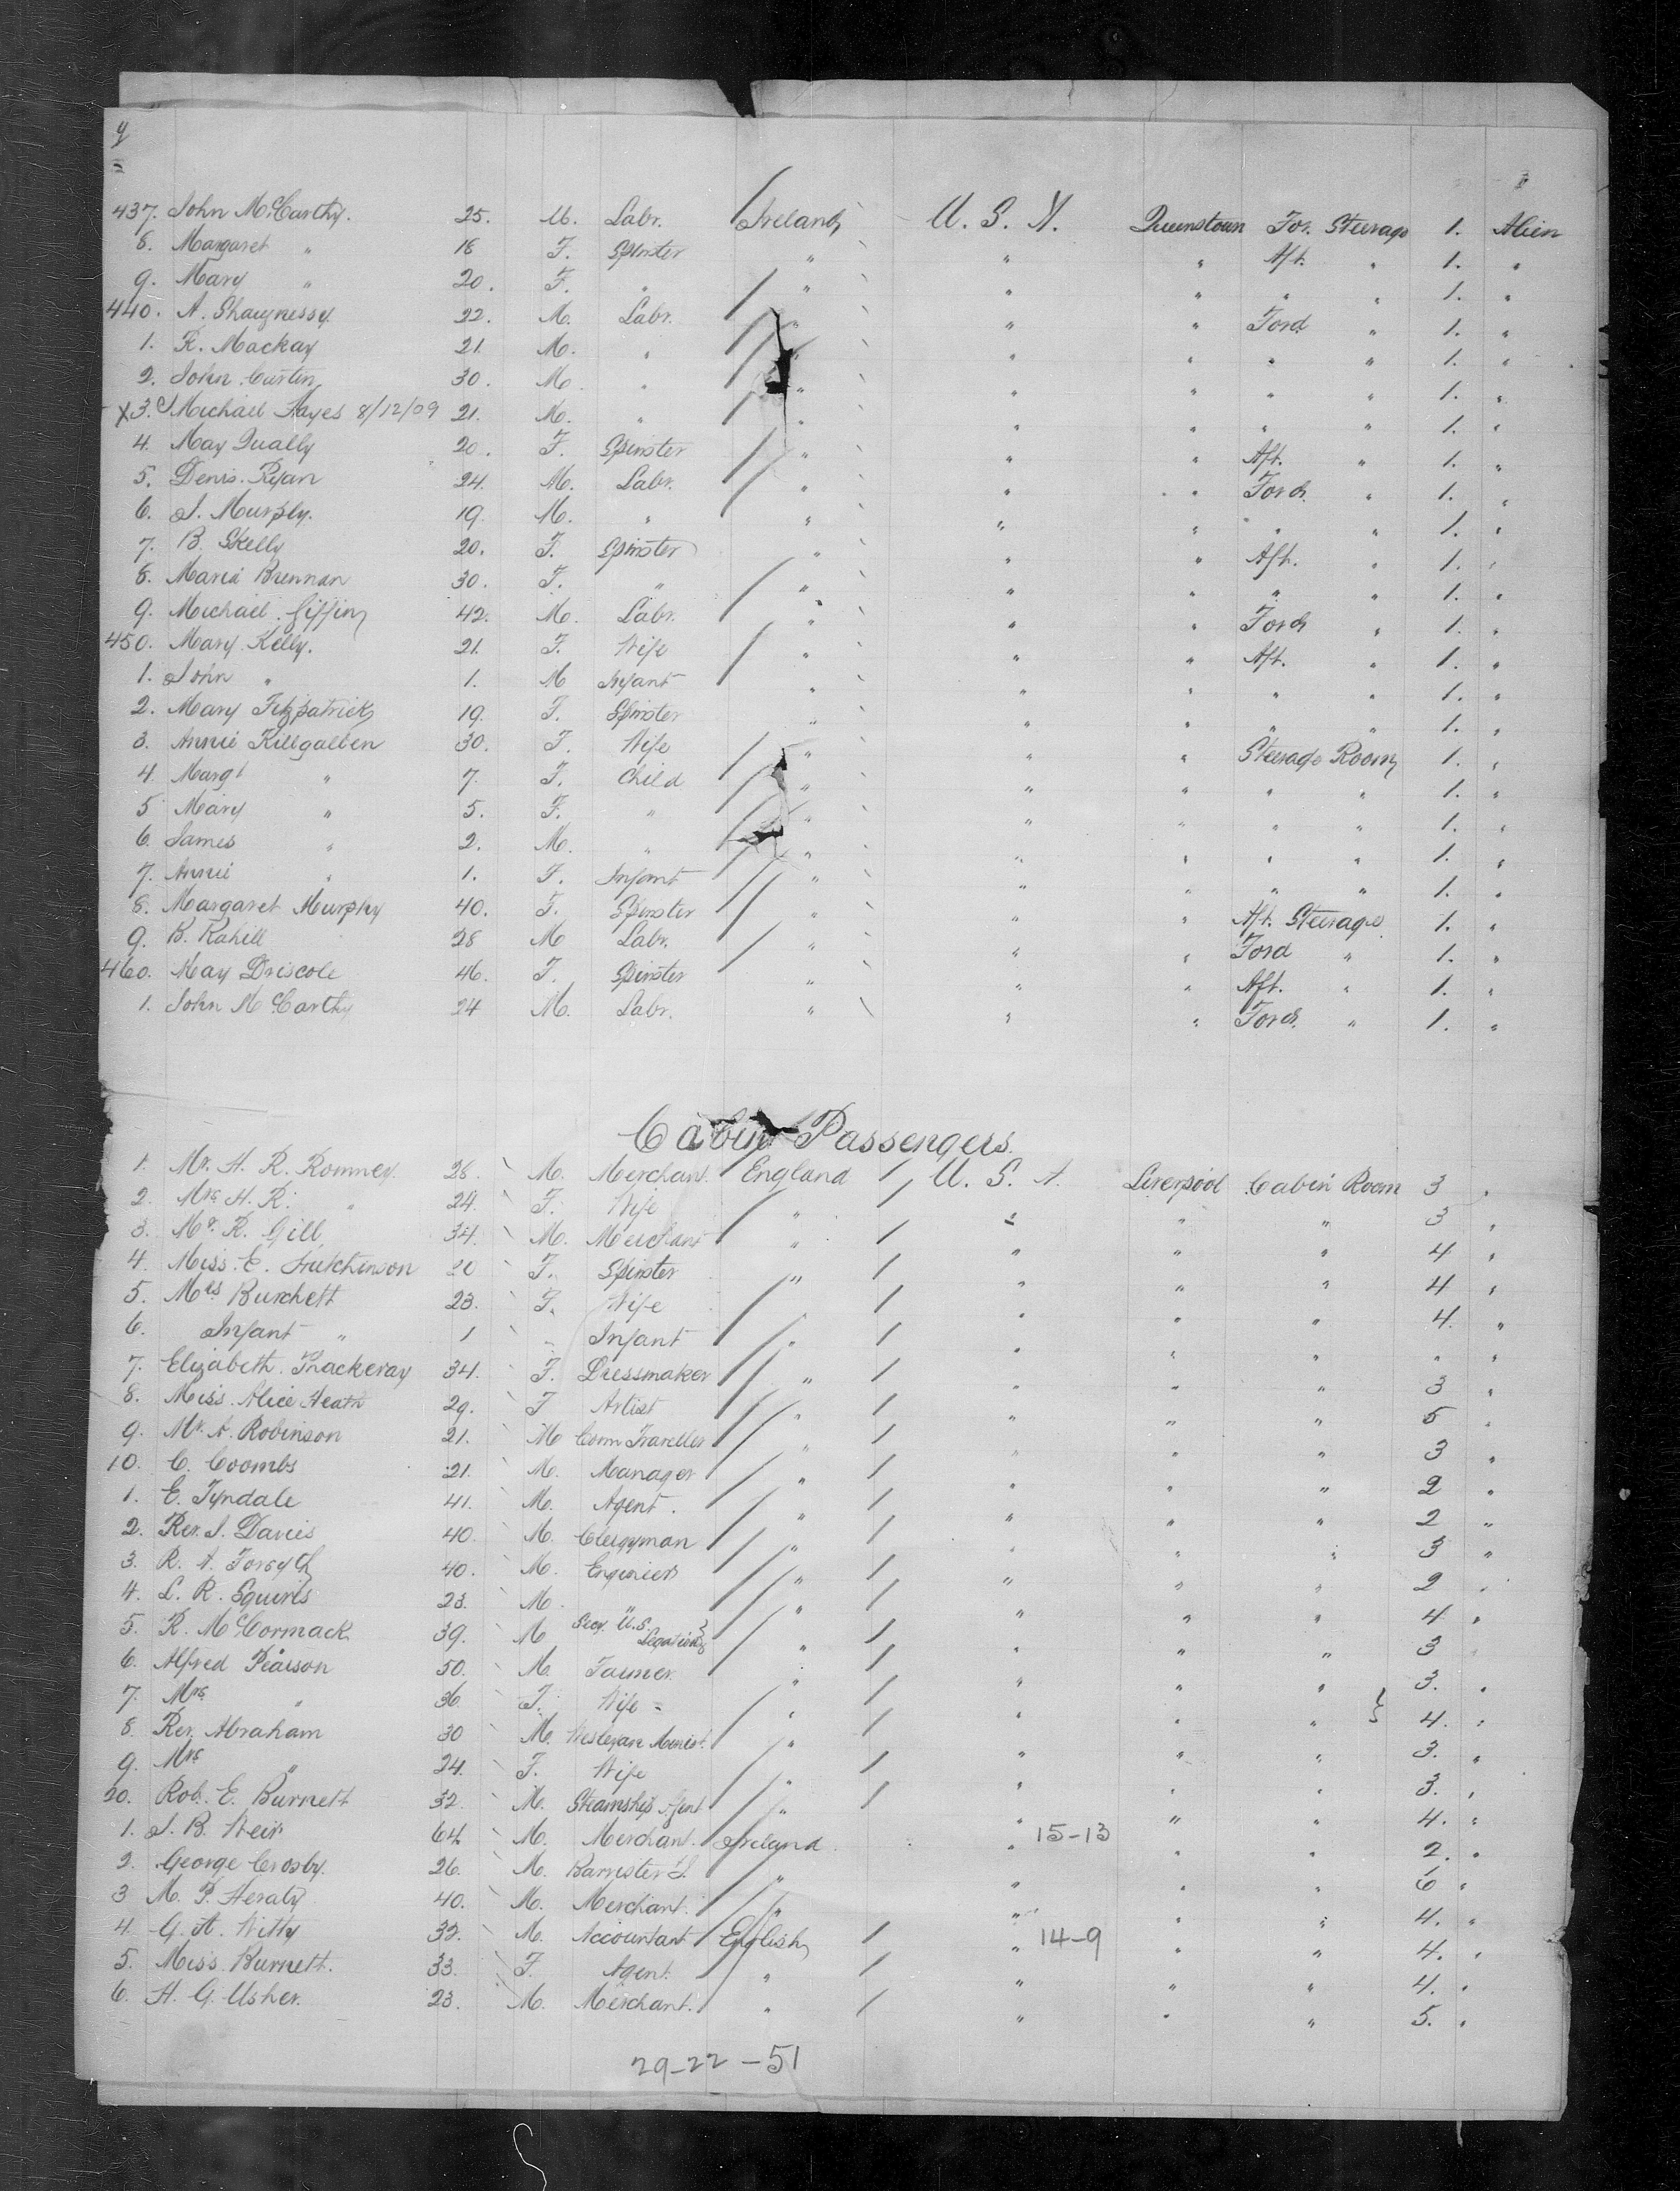 9
437. John McCarthy. 25. M. Labr. Ireland U. S. A. Queenstown For. Steerage 1. Alien
8. Margaret " 18 F. Spinster " " " Aft. " 1. "
9. Mary " 20. F. " " " " " " 1. "
440. A. Shaugnessy. 22. M. Labr. " " " Ford " 1. "
1. R. Mackay 21. M. " " " " " 1. "
2. John Curtin 30. M. " " " " " " 1. "
X3. Michael Hayes 8/12/09 21. M. " " " " " 1. "
4. May Qually 20. F. Spinster " " " Aft. " 1. "
5. Denis Ryan 24. M. Labr. " " " Ford. " 1. "
6. J. Murphy. 19. M. " " " " " " 1. "
7. B. Skelly 20. F. Spinster " " " Aft. " 1. "
8. Maria Brennan 30. F. " " " " " " 1. "
9. Michael Giffin 42. M. Labr. " " " Ford " 1. "
450. Mary Kelly. 21. F. Wife " " " Aft. " 1. "
1. John " 1. M Infant " " " " " 1. "
2. Mary Fitzpatrick 19. F. Spinster " " " " " 1. "
3. Annie Killgallen 30. F. Wife " " " Steerage Room 1. "
4. Margt " 7. F. Child " " " " " 1. "
5. Mary " 5. F. " " " " " " 1. "
6. James " 2. M. " " " " " " 1. "
7. Annie " 1. F. Infant " " " " " 1. "
8. Margaret Murphy 40. F. Spinster " " " Aft. Steerage 1. "
9. B. Kahill 28 M Labr. " " " Ford " 1. "
460. May Driscole 46. F. Spinster " " " Aft. " 1. "
1. John McCarthy 24 M. Labr. " " " Ford. " 1. "
Cabin Passengers.
1. Mr. H. R. Romney. 28. M. Merchant. England U. S. A. Liverpool Cabin Room 3 "
2. Mrs H. R. " 24. F. Wife " " " " 3 "
3. Mr. R. Gill 34. M. Merchant " " " " 4 "
4. Miss. E. Hutchinson 20 F. Spinster " " " " 4 "
5. Mrs Burchett 23. F. Wife " " " " 4. "
6. Infant " 1 Infant " " " " " "
7. Elizabeth Thackeray 34. F. Dressmaker " " " " 3 "
8. Miss. Alice Heath 29. F Artist " " " " 5 "
9. Mr. A. Robinson 21. M Comm Traveller " " " " 3 "
10. C. Coombs 21. M. Manager " " " " 2 "
1. E. Tyndale 41. M. Agent. " " " " 2 "
2. Rev. J. Davies 40. M. Clergyman " " " " 3 "
3. R. A. Forsyth 40. M. Engineer " " " " 2 "
4. L. R. Squires 23. M. " " " " " 4 "
5. R. McCormack 39. M Secy. U.S. Legation " " " " 3 "
6. Alfred Pearson 50. M. Farmer. " " " " 3. "
7. Mrs " 36. F. Wife " " " " 4. "
8. Rev. Abraham 30 M. Wesleyan Minist. " " " " 3. "
9. Mrs " 24. F. Wife " " " " 3. "
20. Rob. E. Burnett 32. M. Steamship Agent " " " " 4. "
1. J. B. Weir 64 M. Merchant. Ireland " 15-13 " " 2. "
2. George Crosby. 26. M. Barrister L. " " " " 6 "
3 M. P. Heraty 40. M. Merchant. " " " " 4. "
4. G. A. Witty 32. M. Accountant English " 14-9 " " 4. "
5. Miss. Burnett. 33. F. Agent. " " " " 4. "
6. H. G. Usher. 23. M. Merchant. " " " " 5. "
29-22-51